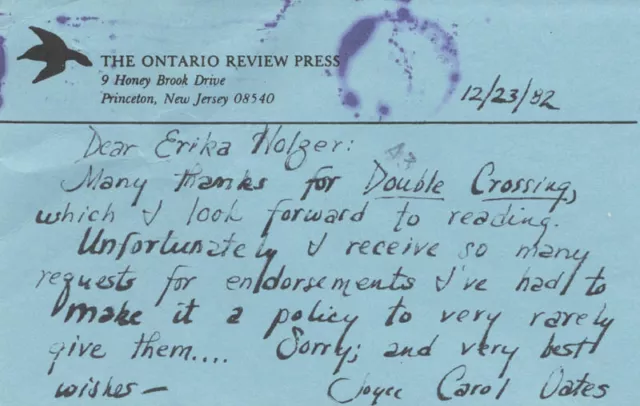 THE ONTARIO REVIEW PRESS
9 Honey Brook Drive
Princeton, New Jersey 08540
12/23/82
Dear Erika Holzer:
Many thanks for Double Crossing,
which I look forward to reading.
Unfortunately I receive so many
requests for endorsements I've had to
make it a policy to very rarely
give them.... Sorry; and very best
wishes —
Joyce Carol Oates